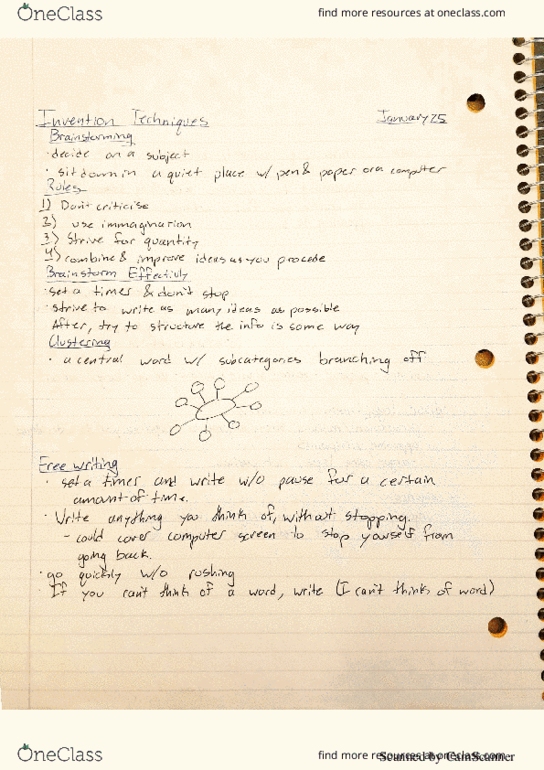 OneClass
find more resources at oneclass.com
Invention Techniques January 25
Brainstorming
· decide on a subject
· sit down in a quiet place w/ pen & paper or a computer
Rules
1) Don't criticise
2) use immaginarion
3) Strive for quantity
4) combine & improve ideas as you procede
Brainstorm Effectivly
· set a timer & don't stop
· strive to write as many ideas as possible
After, try to structure the info is some way
Clustering
· a central word w/ subcategories branching off
Free writing
· set a timer and write w/o pause for a certain
amount of time.
· Write anything you think of, without stopping.
- could cover computer screen to stop yourself from
going back.
· go quickly w/o rushing
· If you can't think of a word, write (I can't think of word)
OneClass
find more resources at oneclass.com
Scanned by CamScanner